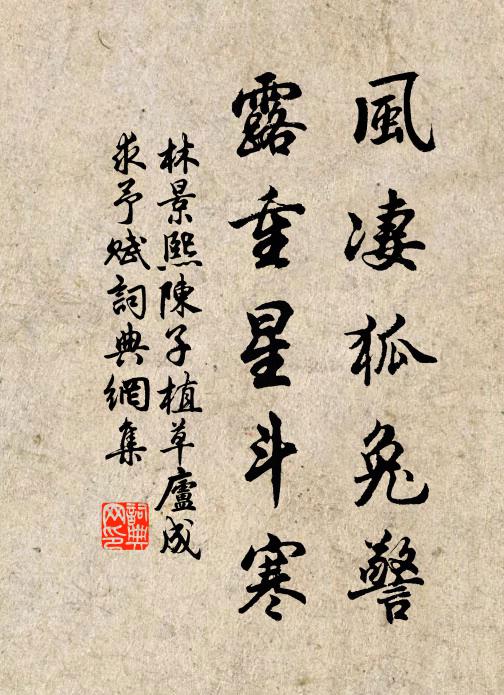 風淒狐兔警
露重星斗寒
林景熙陳子植草廬成
求予賦詞典網集
詞典
网印